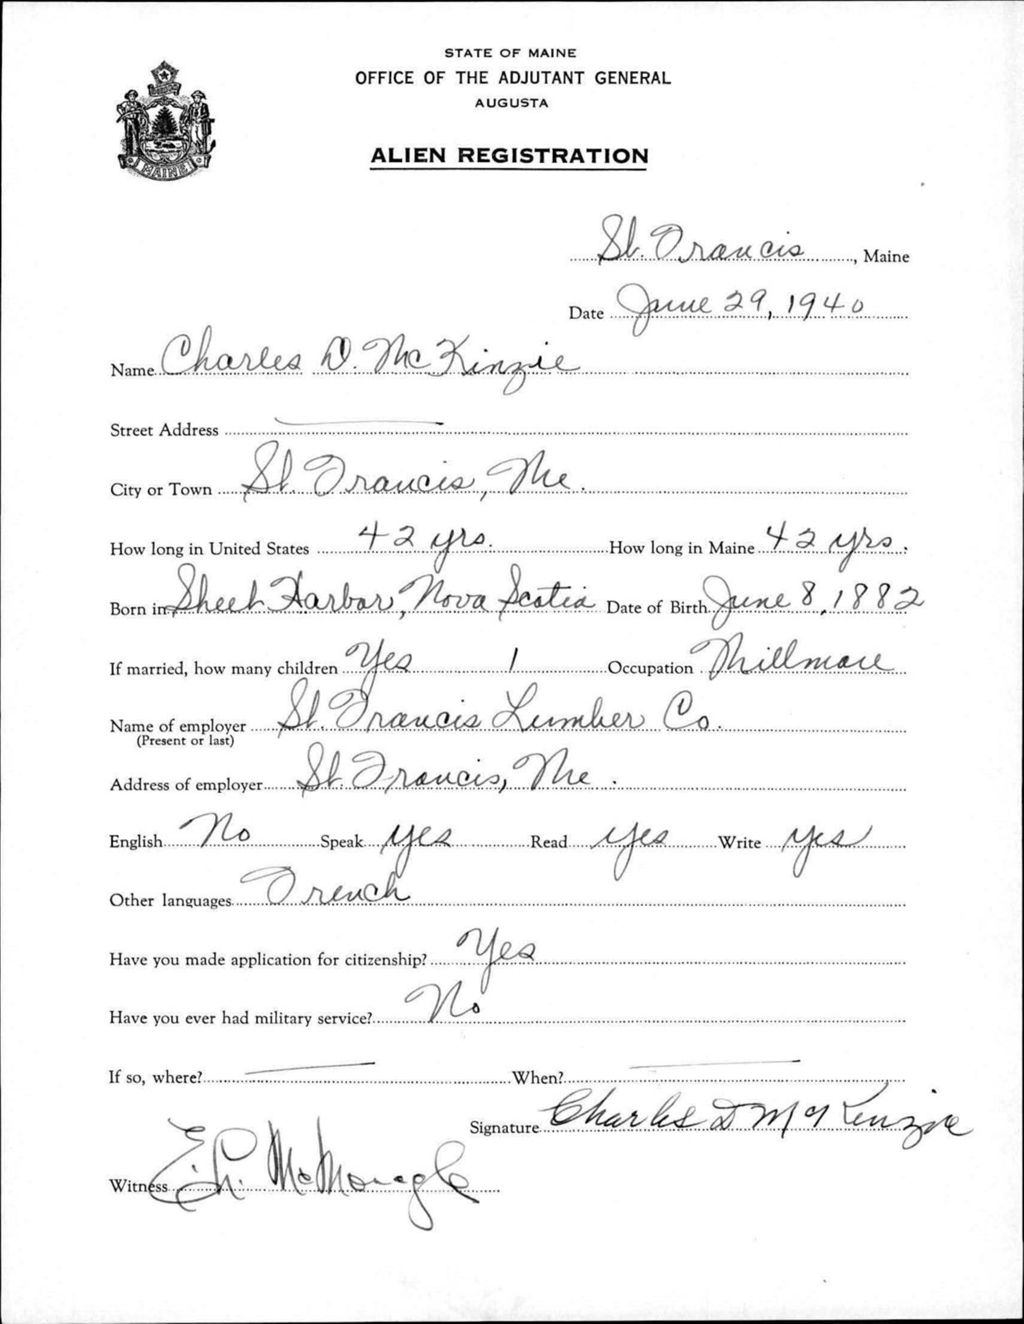 STATE OF MAINE
OFFICE OF THE ADJUTANT GENERAL
AUGUSTA
ALIEN REGISTRATION
MAINE
St. Francis, Maine
Date June 29, 1940
Name Charles D. McKinzie
Street Address
City or Town St. Francis, Me.
How long in United States 42 yrs. How long in Maine 42 yrs.
Born in Sheet Harbor, Nova Scotia Date of Birth June 8, 1882
If married, how many children Yes 1 Occupation Millman
Name of employer St. Francis Lumber Co.
(Present or last)
Address of employer St. Francis, Me.
English No Speak yes Read yes Write yes
Other languages French
Have you made application for citizenship? Yes
Have you ever had military service? No
If so, where? When?
Signature Charles D McKenzie
Witness E.R. McMonagle